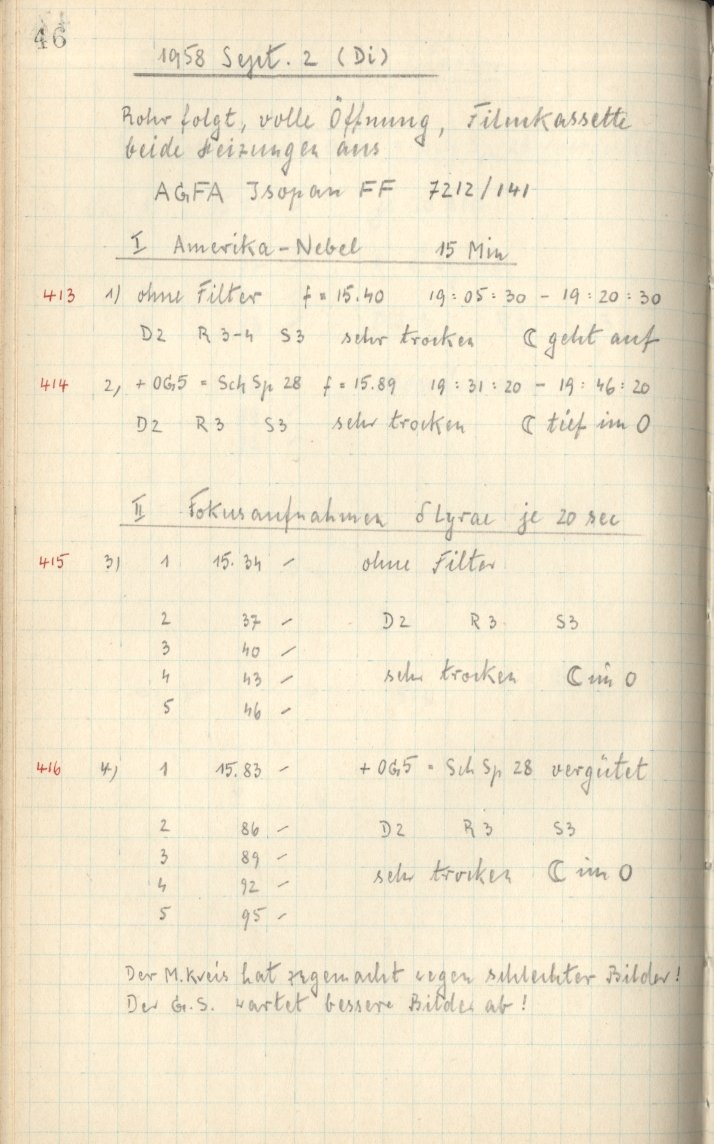 46
1958 Sept. 2 (Di)
Rohr folgt, volle Öffnung, Filmkassette
beide Heizungen aus
AGFA Isopan FF 7212/141
I Amerika-Nebel 15 Min
413 1) ohne Filter f = 15.40 19:05:30 - 19:20:30
D2 R 3-4 S3 sehr trocken ☾ geht auf
414 2) + OG5 = Sch Sp 28 f = 15.89 19:31:20 - 19:46:20
D2 R3 S3 sehr trocken ☾ tief im O
II Fokusaufnahmen δ Lyrae je 20 sec
415 3) 1 15.34 - ohne Filter
2 37 - D2 R3 S3
3 40 -
4 43 - sehr trocken ☾ im O
5 46 -
416 4) 1 15.83 - + OG5 = Sch Sp 28 vergütet
2 86 - D2 R3 S3
3 89 -
4 92 - sehr trocken ☾ im O
5 95 -
Der M.Kreis hat zugemacht wegen schlechter Bilder!
Der G.S. wartet bessere Bilder ab!